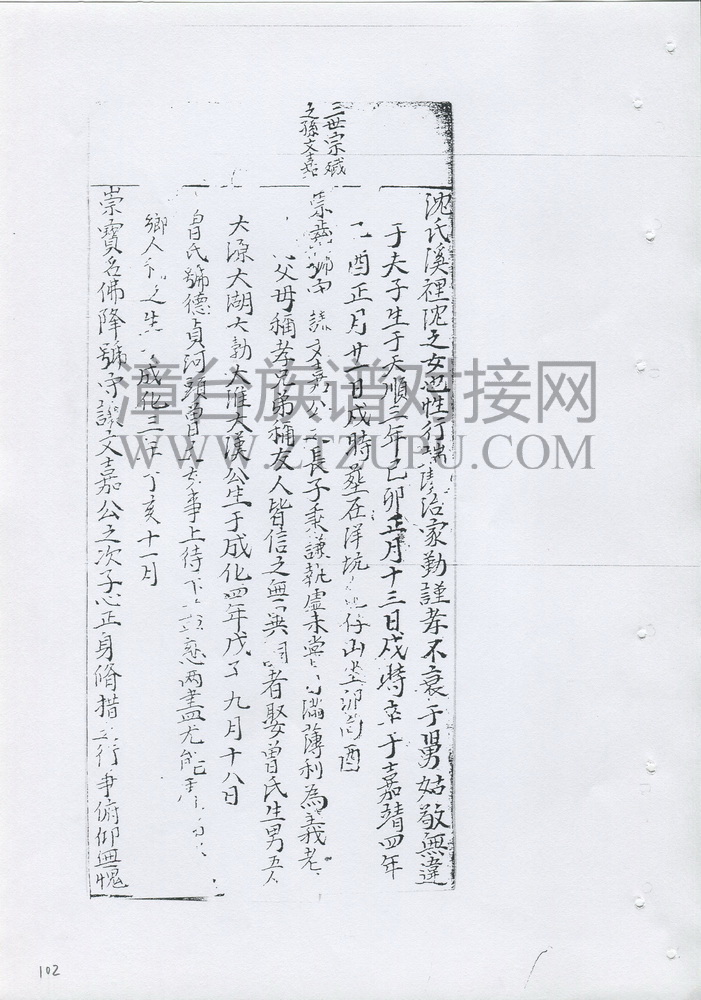 三世宗
之孫文嘉
沈氏溪裡沈之女也性行治家勤謹孝不衰于舅姑敬無違
于夫子生于天順三年己卯正月十三日戌時卒于嘉靖四年
酉正月廿一日戌時葬在洋坑仔山坐卯向酉
崇諱文嘉公長子秉謙執虛未嘗滿薄利為義老
父母稱孝兄弟稱友人皆信之無異詞者娶曾氏生男五人
大源大湖大勃大淮大漢公生于成化四年戊子九月十八日
曾氏號德貞河頭曾氏女事上待下兩盡尤能
鄉人成化三年丁亥十一月
崇寶名佛降號守諱文嘉公之次子心正身脩措行爭俯仰無愧
漳台族谱对接网
WWW.ZTZUPU.COM
102